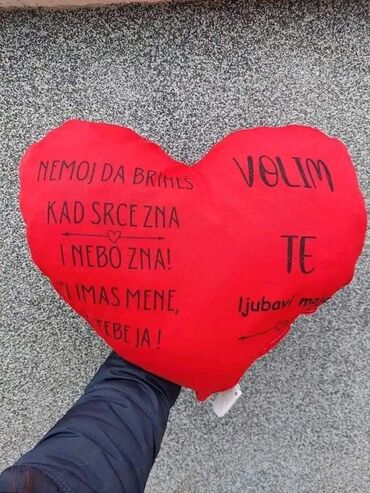 NEMOJ DA BRINEŠ
KAD SRCE ZNA
I NEBO ZNA!
TI IMAS MENE,
TEBE JA!
VOLIM
TE
ljubavi